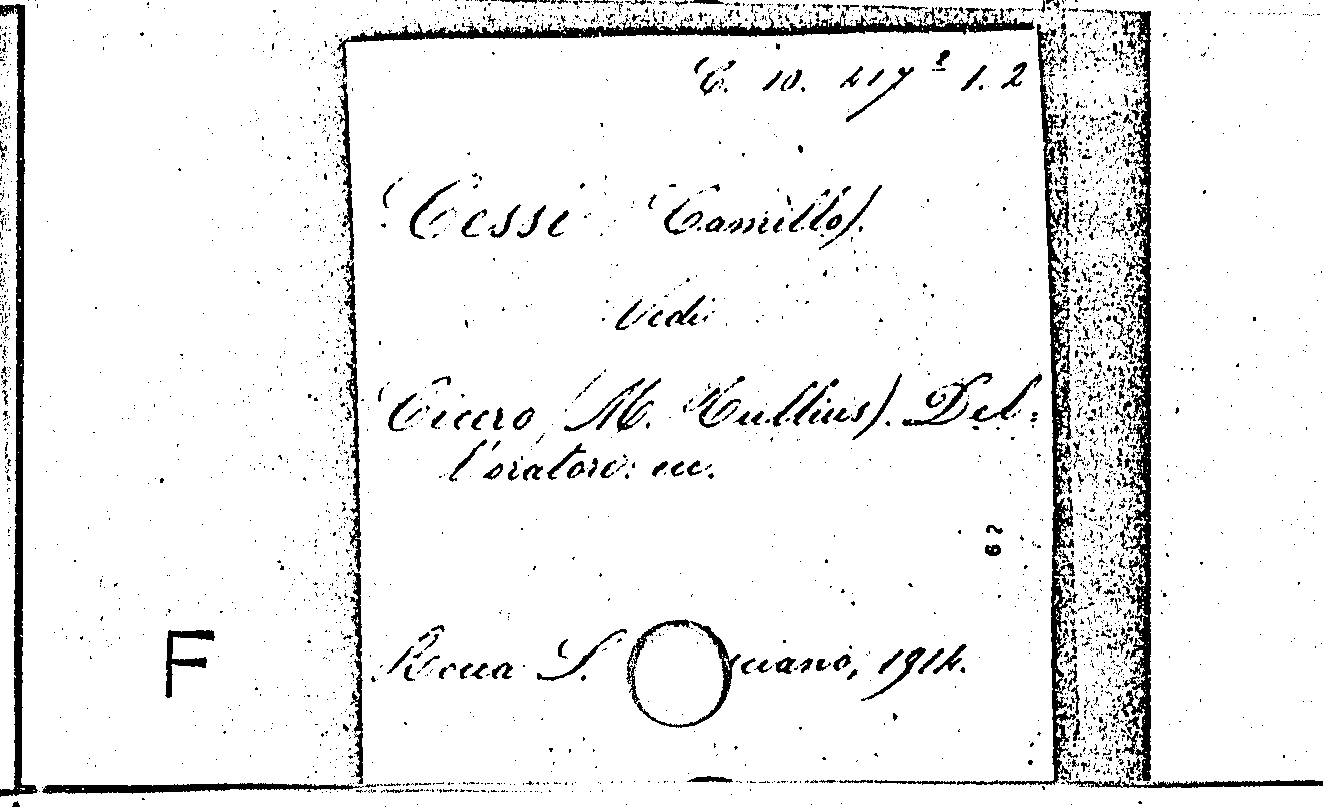 C. 10. 417² 1. 2
Cessi (Camillo).
Vedi
Cicero (M. Tullius). Del=
l'oratore: ecc.
62
Rocca S. sciano, 1914.
F